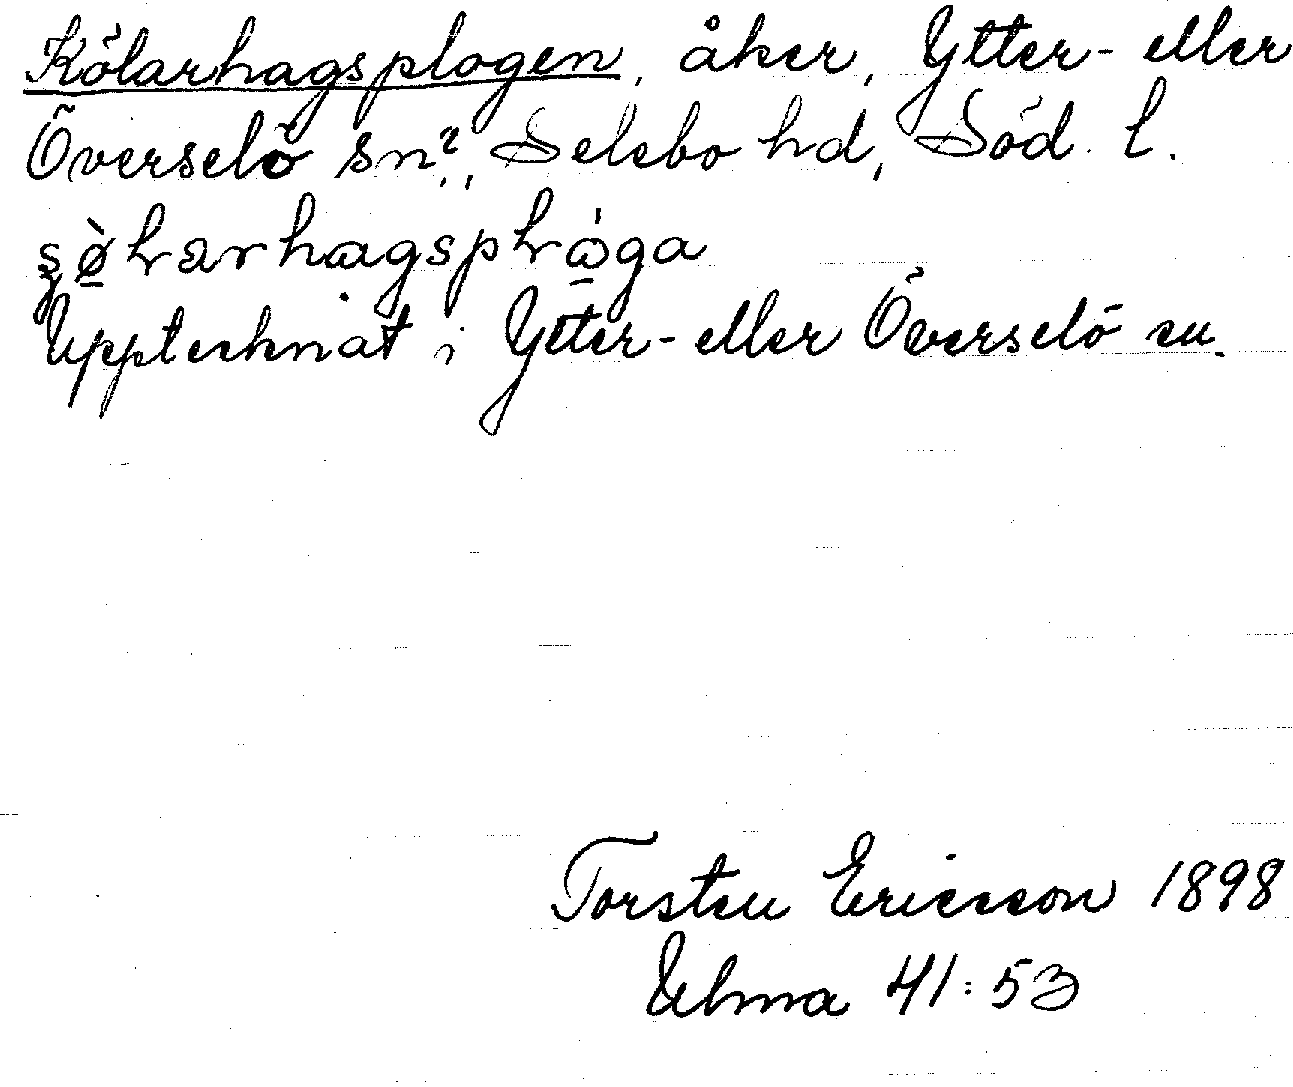 Kölarhagsplogen, åker, Ytter- eller
Överselö sn?, Selebo hd, Söd. l.
Upptecknat i Ytter- eller Överselö sn.
Torsten Ericsson 1898
Ulma 41:53